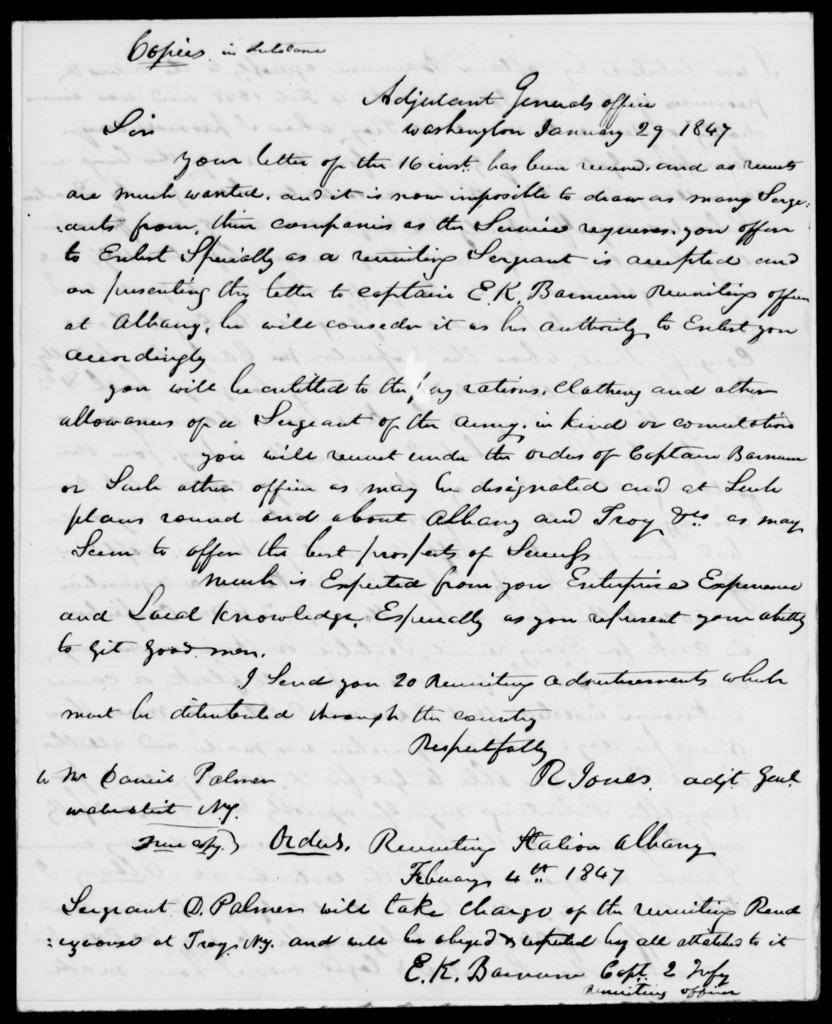 Copies in substance
Adjutant Generals office
Washington January 29 1847
Sir
your letter of the 16 inst. has been received. and as recruits
are much wanted. and it is now impossible to draw as many Serge:
:ants from, their companies as the Service requires. you offer
to Enlist Specially as a recruiting Sergeant is accepted and
on presenting this letter to Captain E. K. Barnum Recruiting officer
at Albany, he will consider it as his authority to Enlist you
accordingly
you will be entitled to the pay rations. Clothing and other
allowances of a Sergeant of the army. in kind or comutation
you will recruit under the orders of Captain Barnum
or Such other officer as may be designated and at Such
places round and about Albany and Troy &c as may
Seem to offer the best prospects of Success
much is Expected from your Enterprise Experience
and Local knowledge. Especially as you represent your ability
to git good men.
I Send you 20 Recruiting advertisements which
must be distributed through the country
Respectfully
R Jones. adjt. Genl.
to Mr Daniel Palmer
NY.
Orders. Recruiting Station Albany
February 4th 1847
Sergeant D. Palmer will take charge of the recruiting Rend
:ezvous at Troy. NY. and will be obeyed & respected by all attached to it
E. K. Barnum Capt. 2 Infy
Recruiting officer